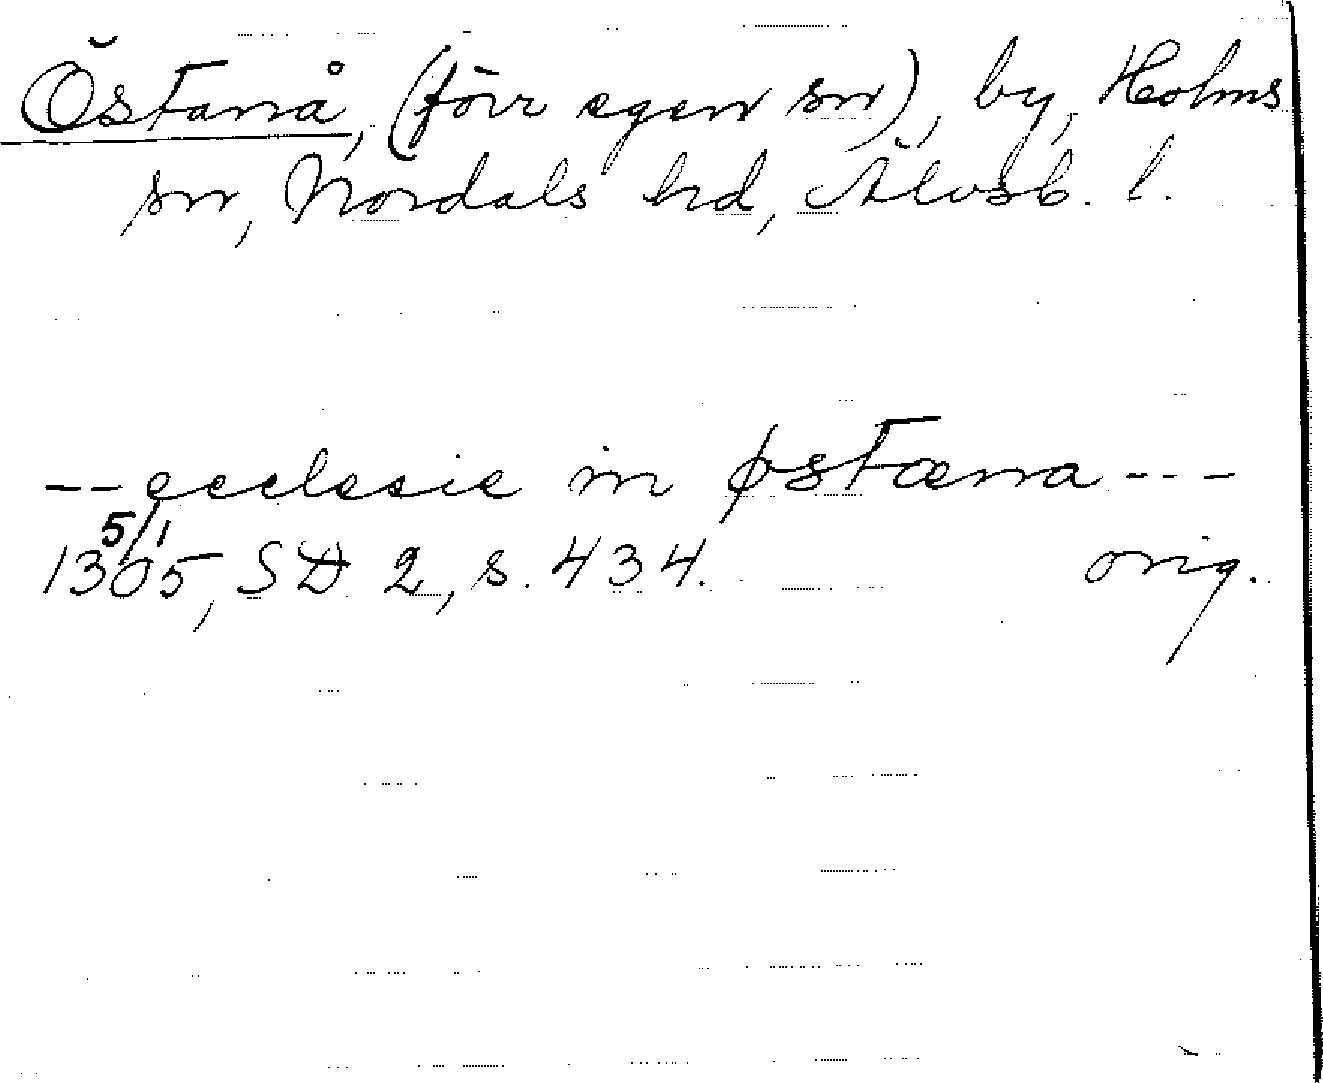 Östanå, (förr egen sn), by, Holms
sn, Nordals hd, Älvsb. l.
-- ecclesie in østæna ---
5/1
1305, SD 2, s. 434. orig.